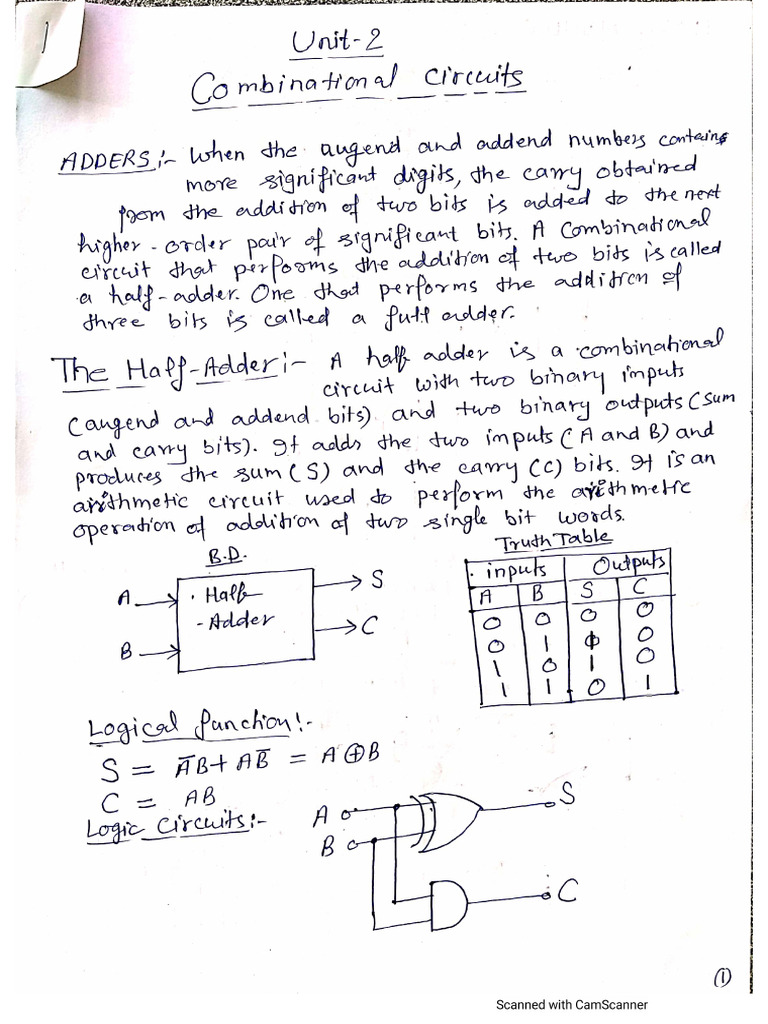 1
Unit-2
Combinational circuits
ADDERS:- When the augend and addend numbers containing
more significant digits, the carry obtained
from the addition of two bits is added to the next
higher-order pair of significant bits. A Combinational
circuit that performs the addition of two bits is called
a half-adder. One that performs the addition of
three bits is called a full adder.
The Half-Adder:- A half adder is a combinational
circuit with two binary inputs
(augend and addend bits) and two binary outputs (sum
and carry bits). It adds the two inputs (A and B) and
produces the sum (S) and the carry (C) bits. It is an
arithmetic circuit used to perform the arithmetic
operation of addition of two single bit words.
B.D.
A
B
Half
-Adder
S
C
Truth Table
inputs Outputs
A B S C
0 0 0 0
0 1 1 0
1 0 1 0
1 1 0 1
Logical function:-
S = A̅B + AB̅ = A⊕B
C = AB
Logic Circuits:-
A
B
S
C
(1)
Scanned with CamScanner